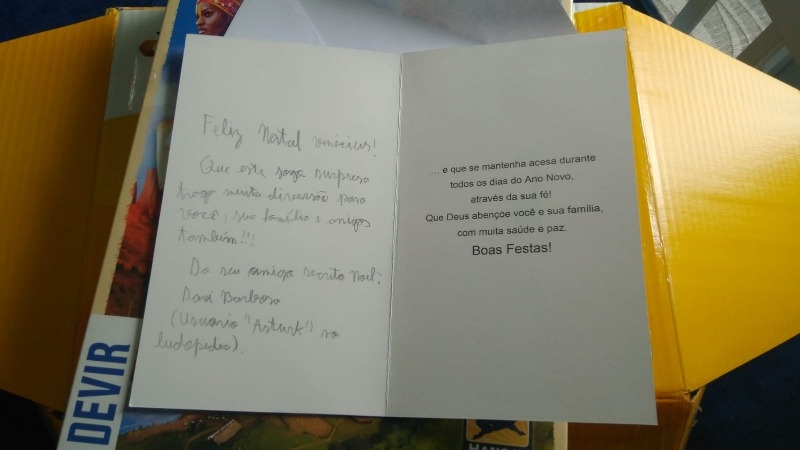 Feliz Natal vinicius!
Que este jogo surpresa
traga muita diversão para
você, sua família e amigos
também!!!
Do seu amigo secreto Noel:
Barbosa
(Usuario "Asturk" na
ludopedia).
... e que se mantenha acesa durante
todos os dias do Ano Novo,
através da sua fé!
Que Deus abençoe você e sua família,
com muita saúde e paz.
Boas Festas!
DEVIR